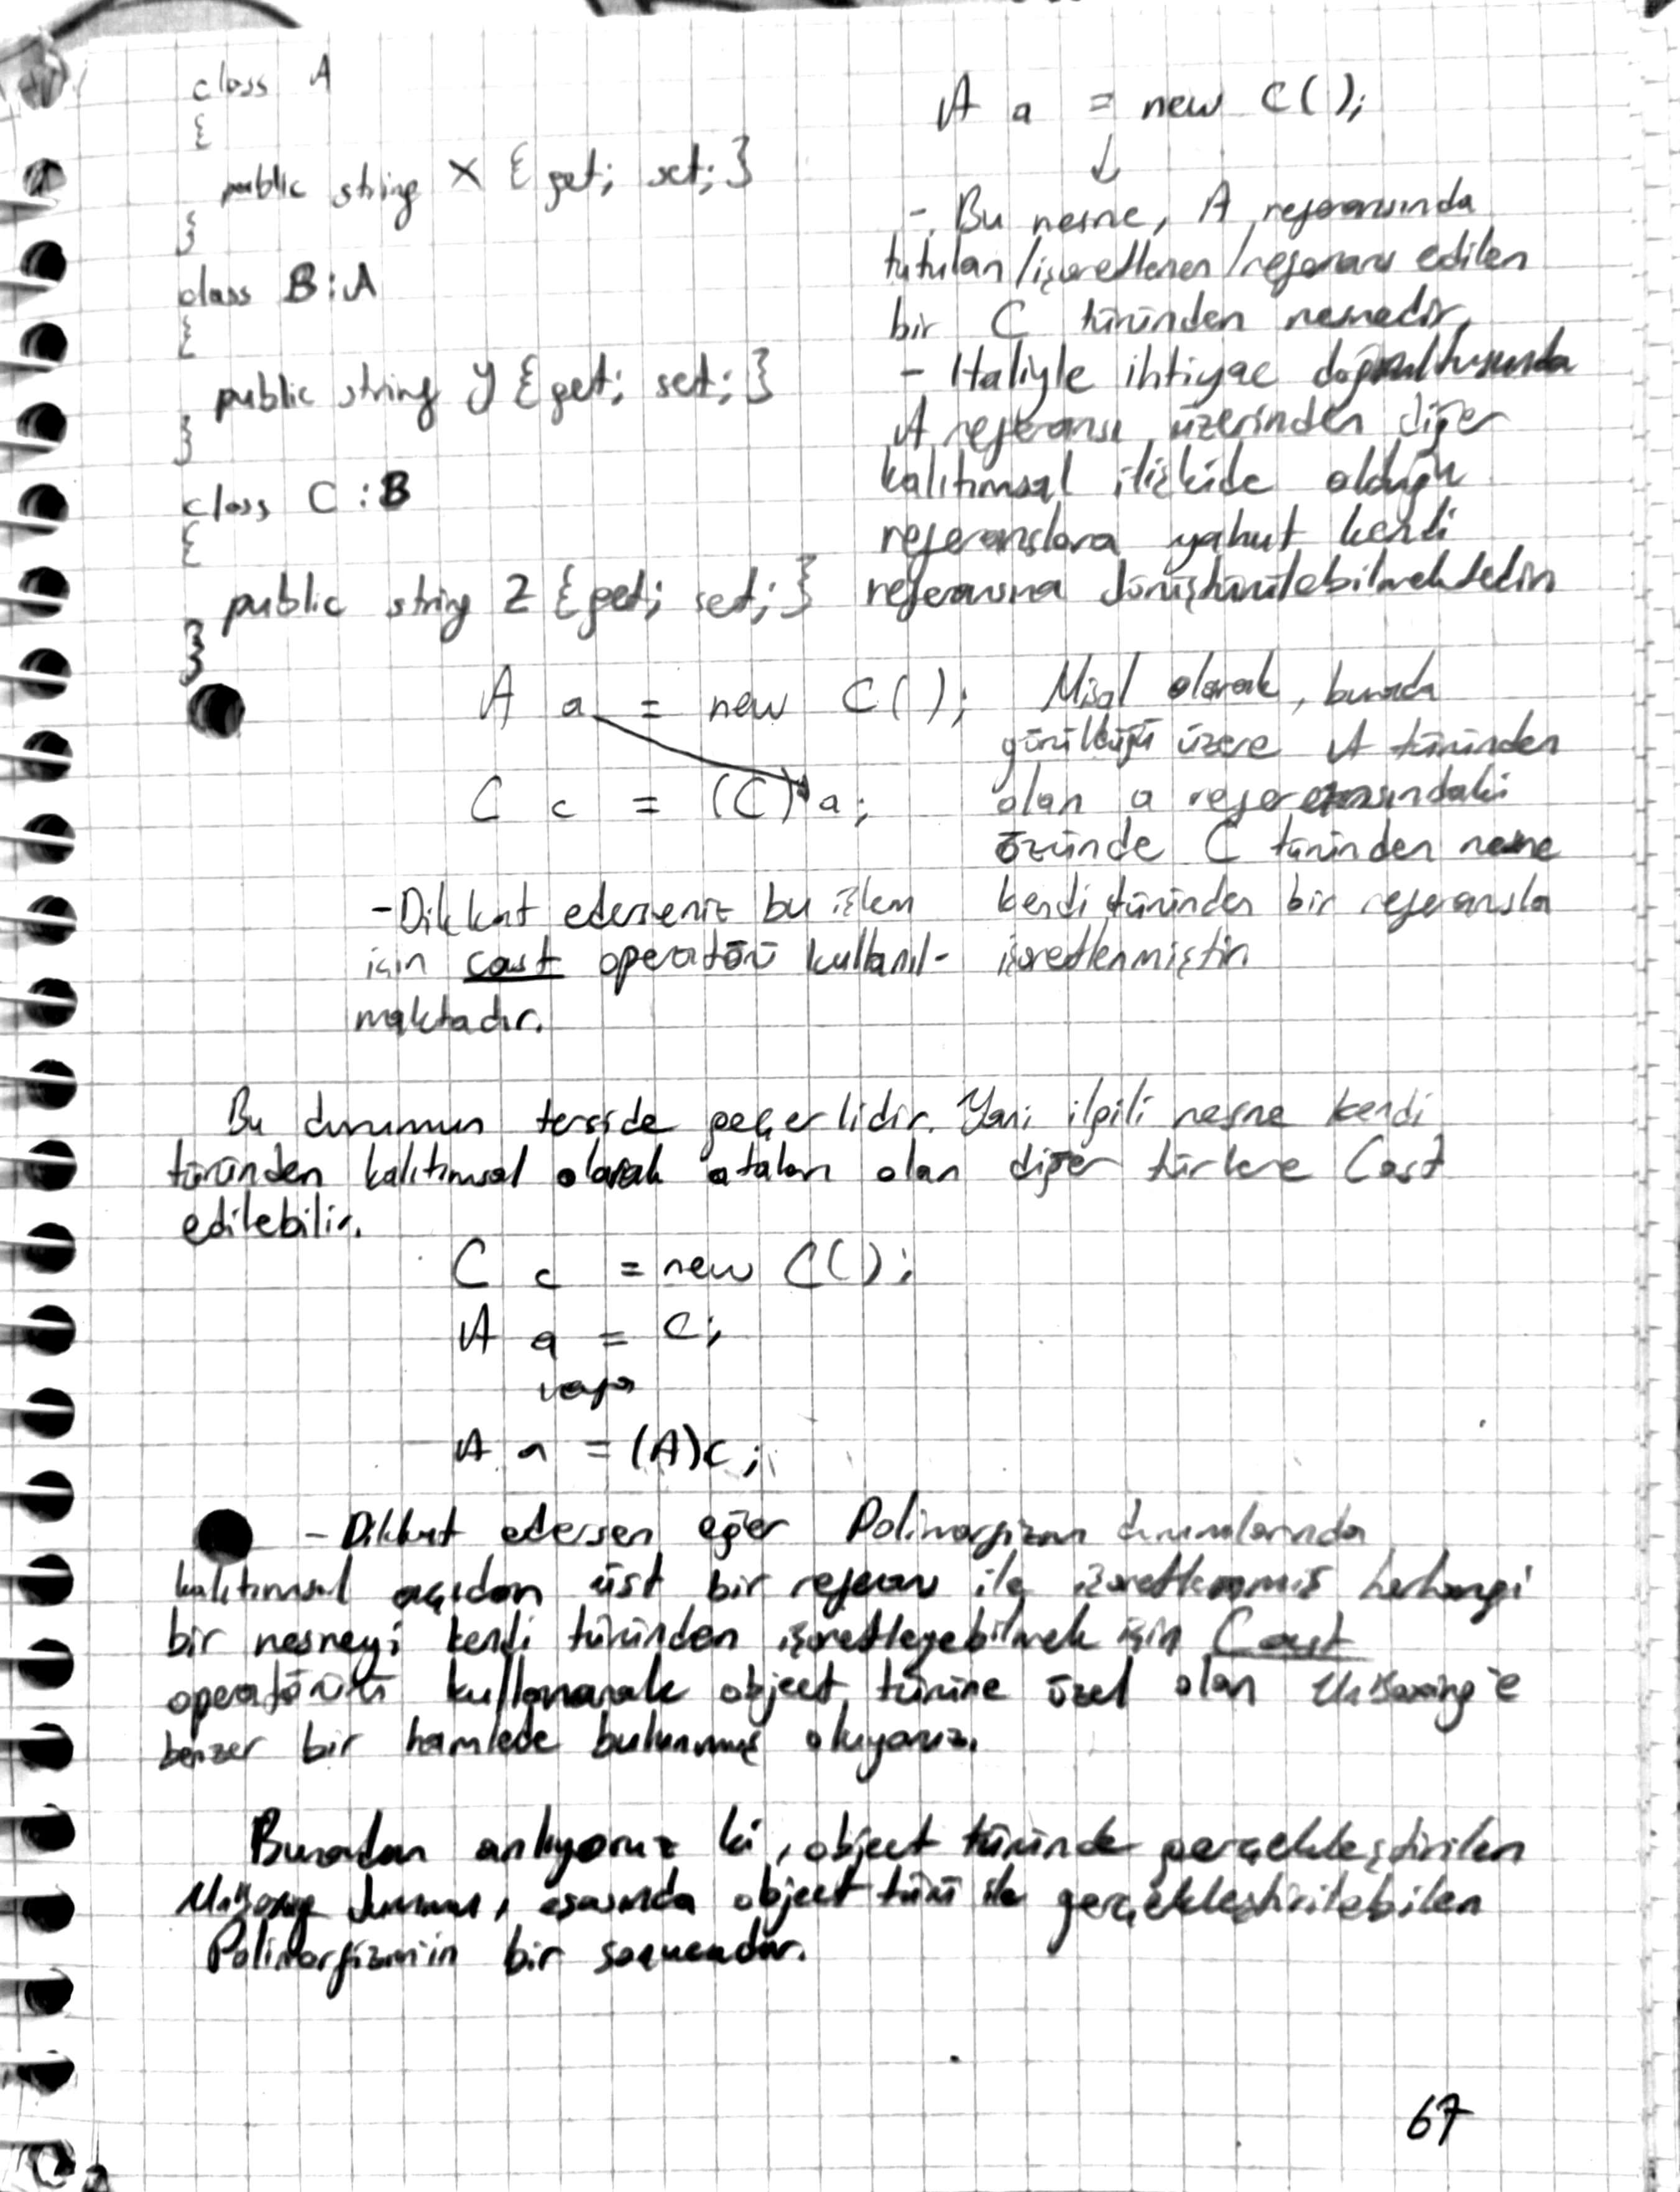 class A
{
public string X { get; set; }
}
class B:A
{
public string Y { get; set; }
}
class C : B
{
public string Z { get; set; }
}
A a = new C();
↓
- Bu nesne, A referansında
tutulan/işaretlenen/referans edilen
bir C türünden nesnedir.
- Haliyle ihtiyac doğrultusunda
A referansı üzerinden diğer
kalıtımsal ilişkide olduğu
referanslara yahut kendi
referansına dönüştürülebilmektedir
A a = new C();
C c = (C) a;
Misal olarak, burada
görüldüğü üzere A türünden
olan a referansındaki
özünde C türünden nesne
kendi türünden bir referansla
işaretlenmiştir.
- Dikkat ederseniz bu işlem
için cast operatörü kullanıl-
maktadır.
Bu durumun terside geçerlidir. Yani ilgili nesne kendi
türünden kalıtımsal olarak ataları olan diğer türlere Cast
edilebilir.
C c = new C();
A a = c;
veya
A a = (A)c;
- Dikkat edersen eğer Polimorfizm durumlarında
kalıtımsal açıdan üst bir referans ile işaretlenmiş herhangi
bir nesneyi kendi türünden işaretleyebilmek için Cast
operatörünü kullanarak object türüne özel olan UnBoxing'e
benzer bir hamlede bulunmuş oluyoruz.
Buradan anlıyoruz ki, object türünde gerçekleştirilen
UnBoxing durumu, esasında object türü ile gerçekleştirilebilen
Polimorfizmin bir sonucudur.
67